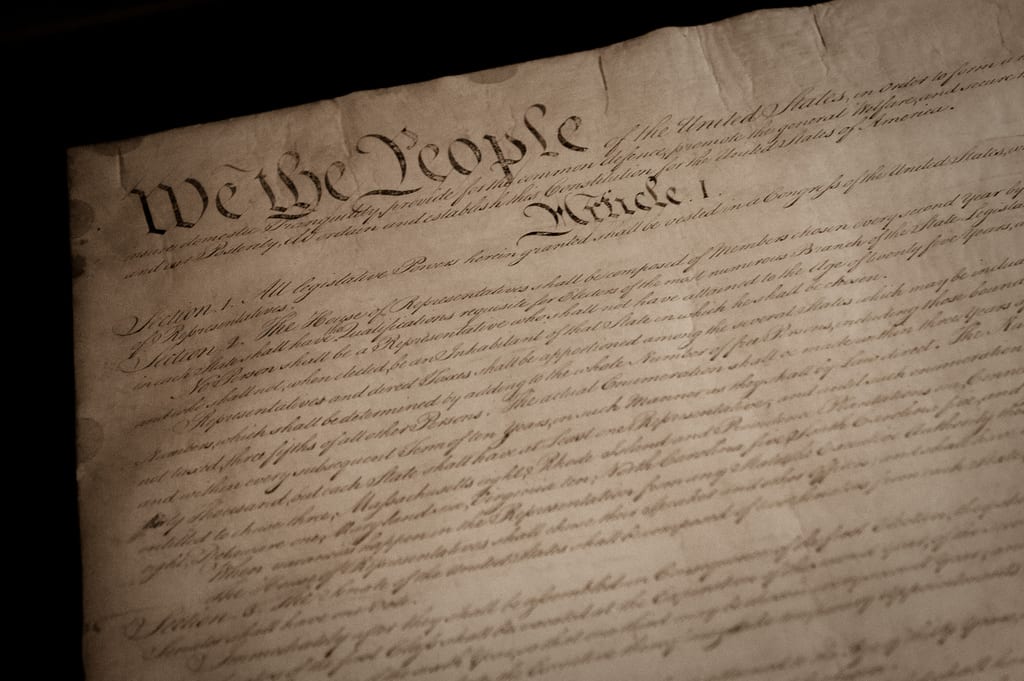 We the People of the United States, in Order to form a
insure domestic Tranquility, provide for the common defence, promote the general Welfare, and secure
and our Posterity, do ordain and establish this Constitution for the United States of America.
Article. I.
Section. 1. All legislative Powers herein granted shall be vested in a Congress of the United States,
of Representatives.
Section. 2. The House of Representatives shall be composed of Members chosen every second Year by
in each State shall have the Qualifications requisite for Electors of the most numerous Branch of the State
No Person shall be a Representative who shall not have attained to the Age of twenty five Years,
and who shall not, when elected, be an Inhabitant of that State in which he shall be chosen.
Representatives and direct Taxes shall be apportioned among the several States which may be
Numbers, which shall be determined by adding to the whole Number of free Persons, including those bound
not taxed, three fifths of all other Persons. The actual Enumeration shall be made within three Years
and within every subsequent Term of ten Years, in such Manner as they shall by Law direct. The
thirty Thousand, but each State shall have at Least one Representative; and until such enumeration
entitled to chuse three, Massachusetts eight, Rhode Island and Providence Plantations one,
eight, Delaware one, Maryland six, Virginia ten, North Carolina five, South Carolina five, and
When vacancies happen in the Representation from any State, the Executive Authority
The House of Representatives shall chuse their Speaker and other Officers; and shall have
Section. 3. The Senate of the United States shall be composed of two Senators from each State,
Senator shall have one Vote.
Immediately after they shall be assembled in Consequence of the first Election,
of the first Class shall be vacated at the Expiration of the second Year, of the